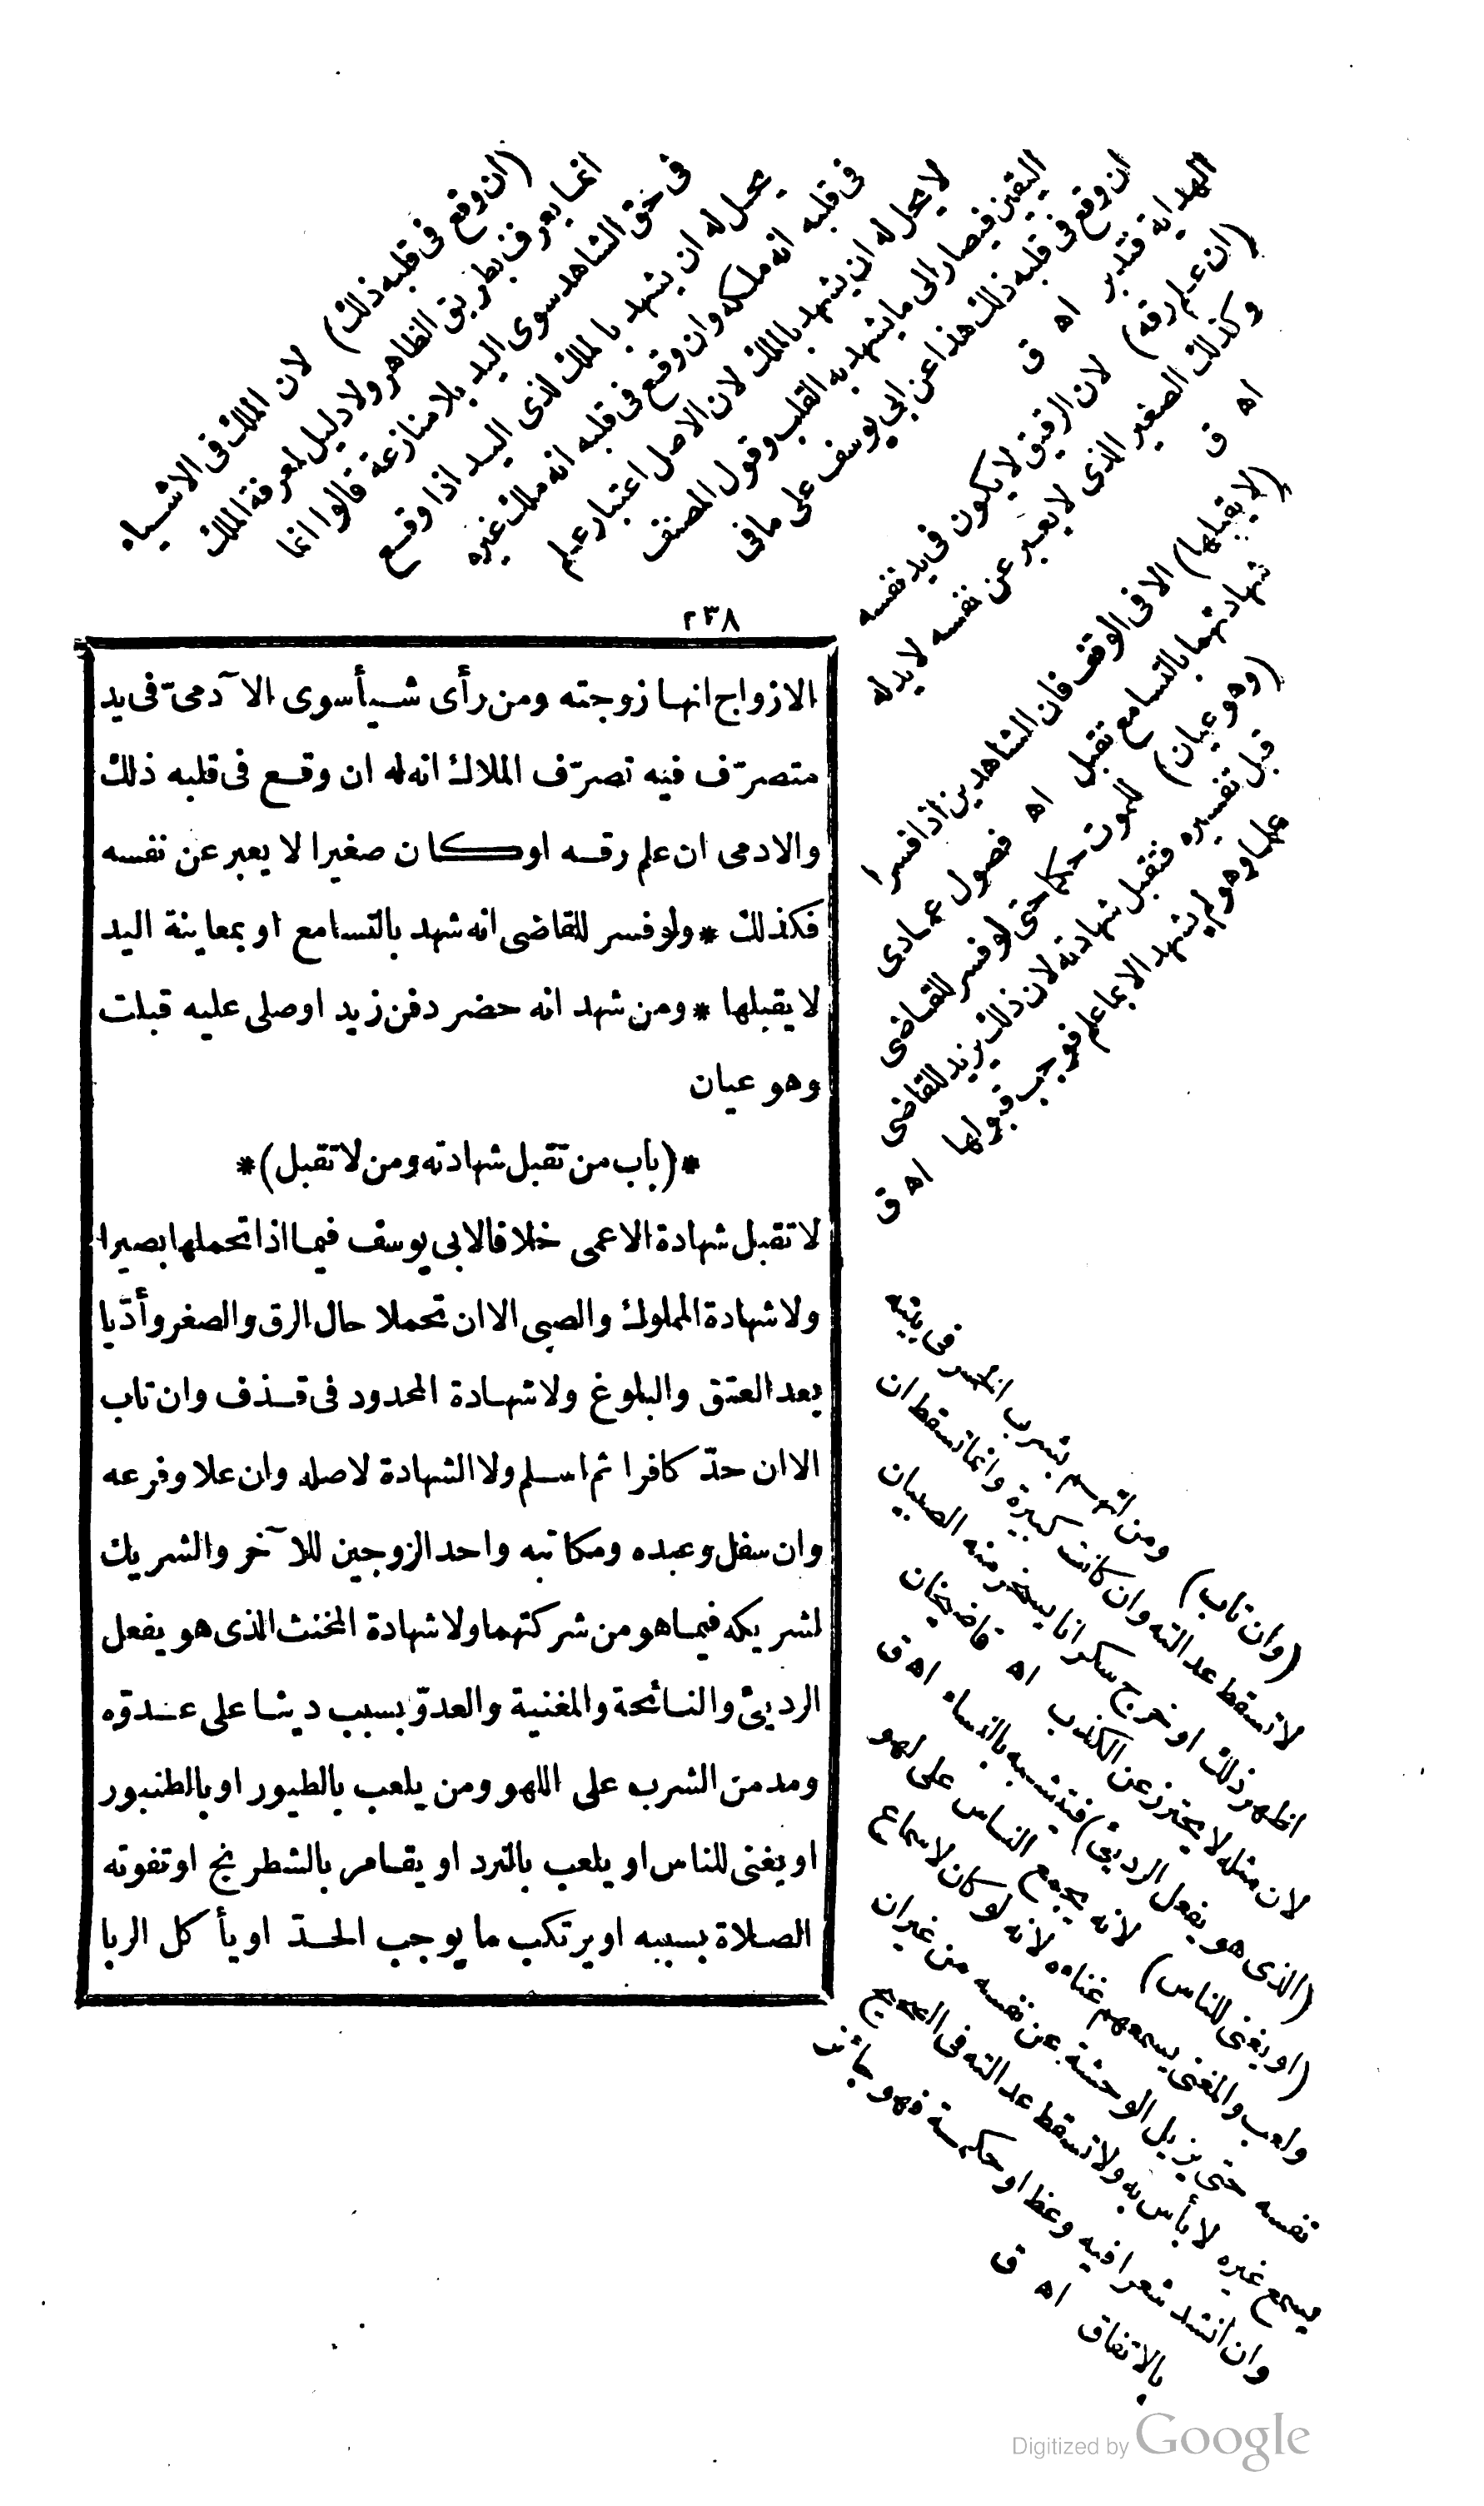 (ان وقع فى قلبه ذلك) لان الملك فى الاشياء
انما يعرف بطريق الظاهر ولا دليل لمعرفة الملك
فى حق الشاهد سوى اليد بلا منازعة قالوا انما
يحل له ان يشهد بالملك لذى اليد اذا وقع
فى قلبه انه ملكه وان وقع فى قلبه انه ملك غيره
لا يحل له ان يشهد بالملك لان الاصل اعتبار علم
اليقين فيصار الى ما يشهد به القلب وقول المصنف
ان وقع فى قلبه ذلك هذا عن ابى يوسف على ما فى
الهداية فتدبر اه ق
(ان علم رقه) لان الرقيق لا يكون فى يد نفسه
وكذلك الصغير الذى لا يعبر عن نفسه لا يد له
اه ق
(لا يقبلها) الا فى الوقف فان الشاهدين اذا فسرا
شهادتهما بالتسامع تقبل اه فصول عمادى
(وهو عيان) للموت حكما حتى لو فسر للقاضى
قبل تفسيره فتقبل شهادته لان ذلك يزيد للقاضى
علما وهو لم يشهد الا بما علم فوجب قبولها اه ق
٢٣٨
الازواج انها زوجته ومن رأى شيأ سوى الآدمىّ فى يد
متصرّف فيه تصرّف الملاك انه له ان وقع فى قلبه ذلك
والادمى ان علم رقه اوكان صغيرا لا يعبر عن نفسه
فكذلك * ولو فسر للقاضى انه شهد بالتسامع او بمعاينة اليد
لا يقبلها * ومن شهد انه حضر دفن زيد اوصلى عليه قبلت
وهو عيان
*(باب من تقبل شهادته ومن لا تقبل)*
لا تقبل شهادة الاعمى خلافا لابى يوسف فيما اذا تحملها بصيرا
ولا شهادة المملوك والصبى الا ان تحملا حال الرق والصغر وأدّيا
بعد العتق والبلوغ ولا شهادة المحدود فى قذف وان تاب
الا ان حدّ كافرا ثم اسلم ولا الشهادة لاصله وان علا وفرعه
وان سفل وعبده ومكاتبه واحد الزوجين للآخر والشريك
لشريكه فيما هو من شركتهما ولا شهادة المخنث الذى هو يفعل
الردىء والنائحة والمغنية والعدوّ بسبب دنيا على عدوّه
ومدمن الشرب على اللهو ومن يلعب بالطيور او بالطنبور
او يغنى للناس او يلعب بالنرد او يقامر بالشطرنج او تفوته
الصلاة بسببه او يرتكب ما يوجب الحدّ او يأكل الربا
(وان تاب) ومن اتهم بشرب الخمر فى بيته
لا تسقط عدالته وان كانت كبيرة وانما تسقط ان
اظهر ذلك او خرج سكرانا يسخر منه الصبيان
لان مثله لا يحترز عن الكذب اه قاضيخان
(الذى هو يفعل الردىء) فيتشبه بالنساء اه ق
(او يغنى للناس) لانه يجمع الناس على لهو
ولعب والمغنى يسمعهم غناءه لانه لو كان لاسماع
نفسه حتى يزيل الوحشة عن نفسه من غير ان
يسمع غيره لا بأس به ولا تسقط عدالته فى الصحيح
وان انشد شعرا فيه وعظ او حكمة فهو جائز
بالاتفاق اه ق
Digitized by Google